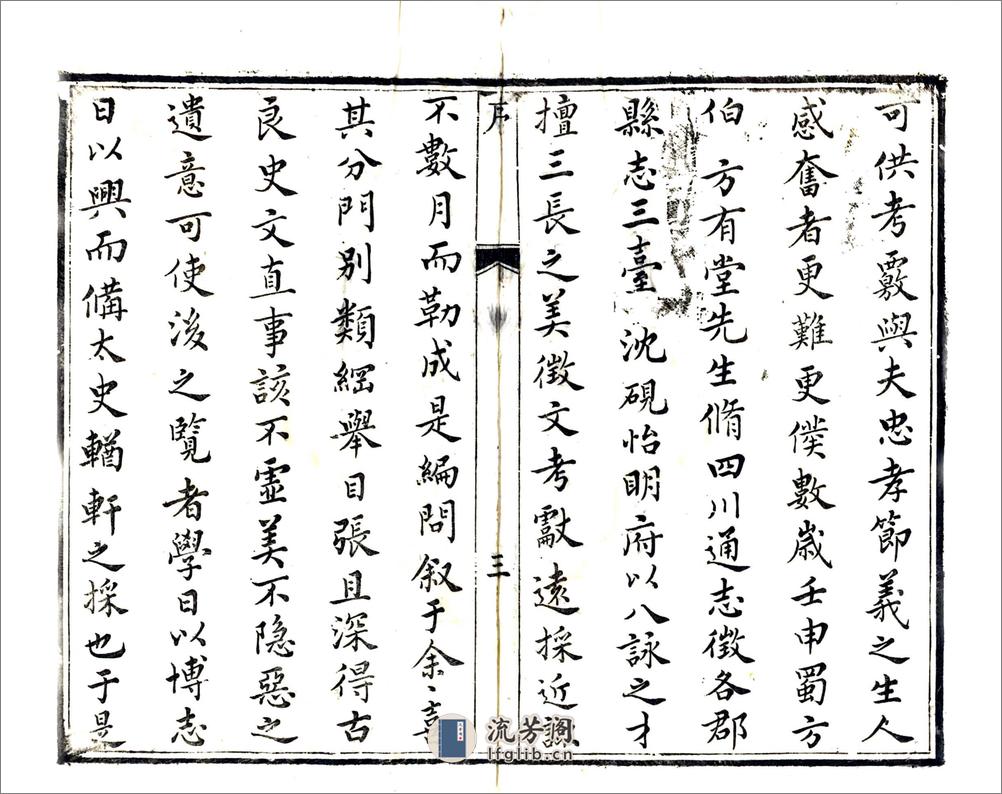 可供考覈與夫忠孝節義之生人
感奮者更難更僕數歲壬申蜀方
伯 方有堂先生脩四川通志徵各郡
縣志三臺 沈硯怡明府以八詠之才
擅三長之美徵文考獻遠採近
序
三
不數月而勒成是編問叙于余〻喜
其分門別類綱舉目張且深得古
良史文直事該不虛美不隐惡之
遺意可使後之覽者學日以博志
日以興而備太史輶軒之採也于是
流芳閣
lfglib.cn